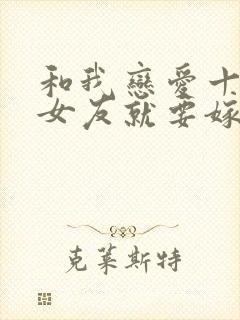 和我戀愛十
女友就要嫁
克萊斯特